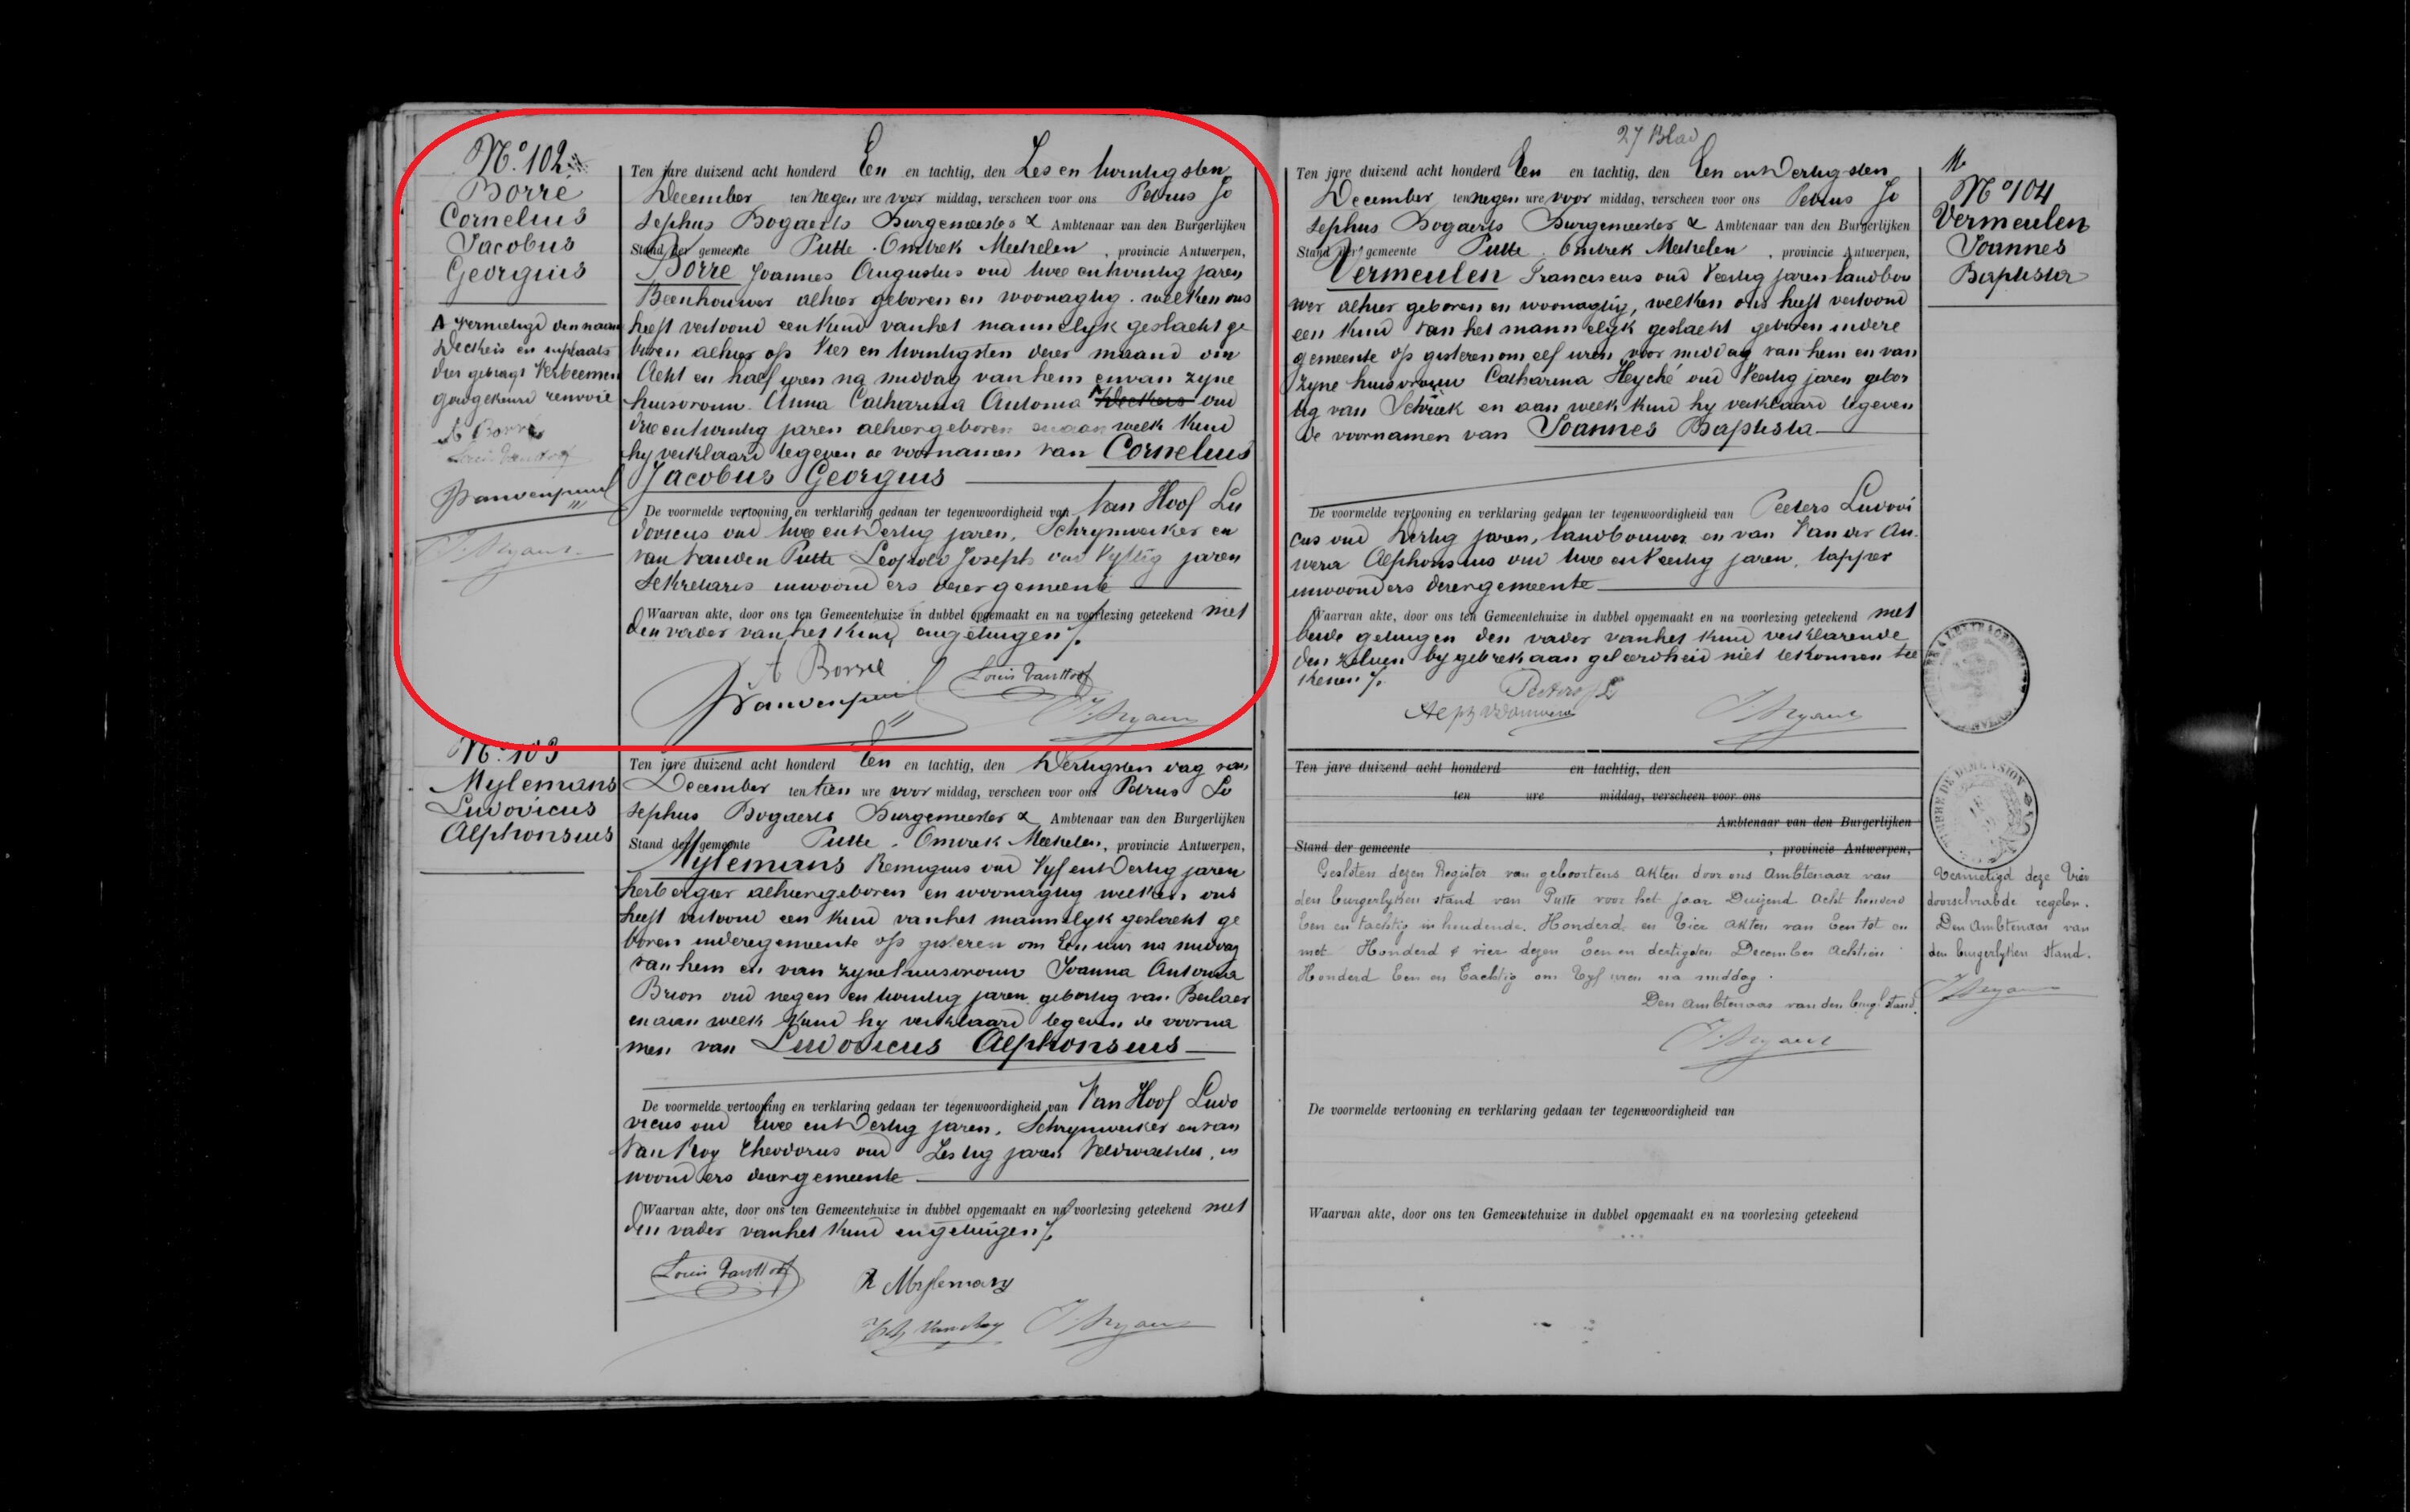 Nº 102
Borré
Cornelius
Jacobus
Georgius
A Vernietigd den naam
Weckers en in plaats
dier gebragt Verbeemen
goedgekeurd renvooi
A Borré
Louis Van Hoof
Ten jare duizend acht honderd Een en tachtig, den Zes en twintigsten
December ten negen ure voor middag, verscheen voor ons Petrus Jo
sephus Bogaerts Burgemeester & Ambtenaar van den Burgerlijken
Stand der gemeente Putte. Omtrek Mechelen, provincie Antwerpen,
Borré Joannes Augustus oud twee en twintig jaren
Beenhouwer alhier geboren en woonagtig. welken ons
heeft vertoond een Kind van het mannelyk geslacht ge
boren alhier op Vier en twintigsten dezer maand om
Acht en half uren na middag van hem en van zyne
huisvrouw Anna Catharina Antonia Weckers oud
drie en twintig jaren alhier geboren en aan welk Kind
hy verklaard te geven de voornamen van Cornelius
Jacobus Georgius
De voormelde vertooning en verklaring gedaan ter tegenwoordigheid van Van Hoof Lu
dovicus oud twee en Dertig jaren, Schrynwerker en
van Vanden Putte Leopold Joseph oud Vyftig jaren
Sekretaris inwoonders dezer gemeente
Waarvan akte, door ons ten Gemeentehuize in dubbel opgemaakt en na voorlezing geteekend met
den vader van het Kind en getuigen /.
A Borré
Louis Van Hoof
Nº 103
Mylemans
Ludovicus
Alphonsus
Ten jare duizend acht honderd Een en tachtig, den Dertigsten dag van
December ten tien ure voor middag, verscheen voor ons Petrus Jo
sephus Bogaerts Burgemeester & Ambtenaar van den Burgerlijken
Stand der gemeente Putte. Omtrek Mechelen, provincie Antwerpen,
Mylemans Remigius oud Vyf en Dertig jaren
herbergier alhier geboren en woonagtig welken ons
heeft vertoond een Kind van het mannelyk geslacht ge
boren in deze gemeente op gisteren om Een uur na middag
van hem en van zyne huisvrouw Joanna Antonia
Brion oud negen en twintig jaren geboortig van Berlaer
en aan welk Kind hy verklaard te geven de voorna
men van Ludovicus Alphonsus
De voormelde vertooning en verklaring gedaan ter tegenwoordigheid van Van Hoof Ludo
vicus oud twee en Dertig jaren, Schrynwerker en van
Van Roy Theodorus oud Zestig jaren Veldwachter, in
woonders dezer gemeente
Waarvan akte, door ons ten Gemeentehuize in dubbel opgemaakt en na voorlezing geteekend met
den vader van het Kind en getuigen /.
Louis Van Hoof
R Mylemans
27 Blad
Ten jare duizend acht honderd Een en tachtig, den Een en Dertigsten
December ten negen ure voor middag, verscheen voor ons Petrus Jo
sephus Bogaerts Burgemeester & Ambtenaar van den Burgerlijken
Stand der gemeente Putte. Omtrek Mechelen, provincie Antwerpen,
Vermeulen Franciscus oud Veertig jaren landbou
wer alhier geboren en woonagtig, welken ons heeft vertoond
een Kind van het mannelyk geslacht geboren in deze
gemeente op gisteren om elf uren voor middag van hem en van
zyne huisvrouw Catharina Heyché oud Veertig jaren geboor
tig van Schriek en aan welk Kind hy verklaard te geven
de voornamen van Joannes Baptista
De voormelde vertooning en verklaring gedaan ter tegenwoordigheid van Peeters Ludovi
cus oud Dertig jaren, landbouwer en van Van der Au
wera Alphonsus oud twee en Veertig jaren, tapper
inwoonders dezer gemeente
Waarvan akte, door ons ten Gemeentehuize in dubbel opgemaakt en na voorlezing geteekend met
beide getuigen den vader van het Kind verklarende
den zelven by gebrek aan geleerdheid niet te Konnen tee
Kenen /.
Peeters L
Nº 104
Vermeulen
Joannes
Baptista
Ten jare duizend acht honderd en tachtig, den
ten ure middag, verscheen voor ons
Ambtenaar van den Burgerlijken
Stand der gemeente , provincie Antwerpen,
Gesloten dezen Register van geboortens Akten door ons Ambtenaar van
den burgerlyken stand van Putte voor het jaar Duizend Acht honderd
Een en tachtig inhoudende Honderd en Vier Akten van Een tot en
met Honderd & vier dezen Een en dertigsten December Achtien
Honderd Een en Tachtig om Vyf uren na middag.
Den Ambtenaar van den burgl stand.
Vernietigd deze Vier
doorschrabde regelen.
Den Ambtenaar van
den burgerlyken stand.
De voormelde vertooning en verklaring gedaan ter tegenwoordigheid van
Waarvan akte, door ons ten Gemeentehuize in dubbel opgemaakt en na voorlezing geteekend